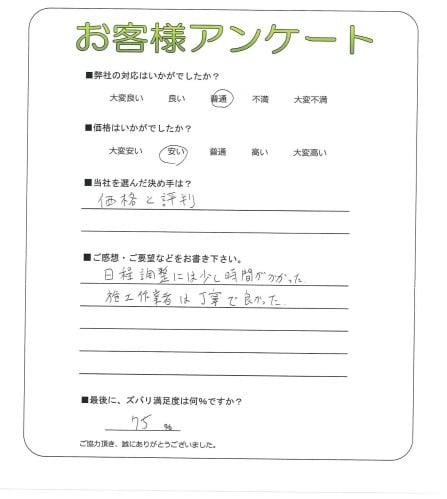 お客様アンケート
■弊社の対応はいかがでしたか？
大変良い 良い 普通 不満 大変不満
■価格はいかがでしたか？
大変安い 安い 普通 高い 大変高い
■当社を選んだ決め手は？
価格と評判
■ご感想・ご要望などをお書き下さい。
日程調整には少し時間がかかった.
施工作業者は丁寧で良かった.
■最後に、ズバリ満足度は何％ですか？
75 ％
ご協力頂き、誠にありがとうございました。